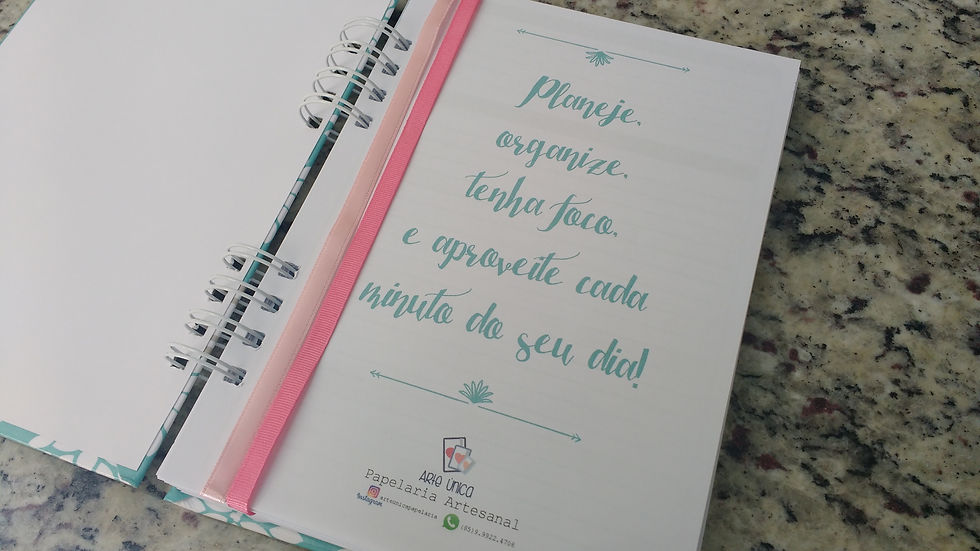 Planeje,
organize,
tenha foco,
e aproveite cada
minuto do seu dia!
ARTE ÚNICA
Papelaria Artesanal
Instagram
arteunicapapelaria
(85)9.9922.4706